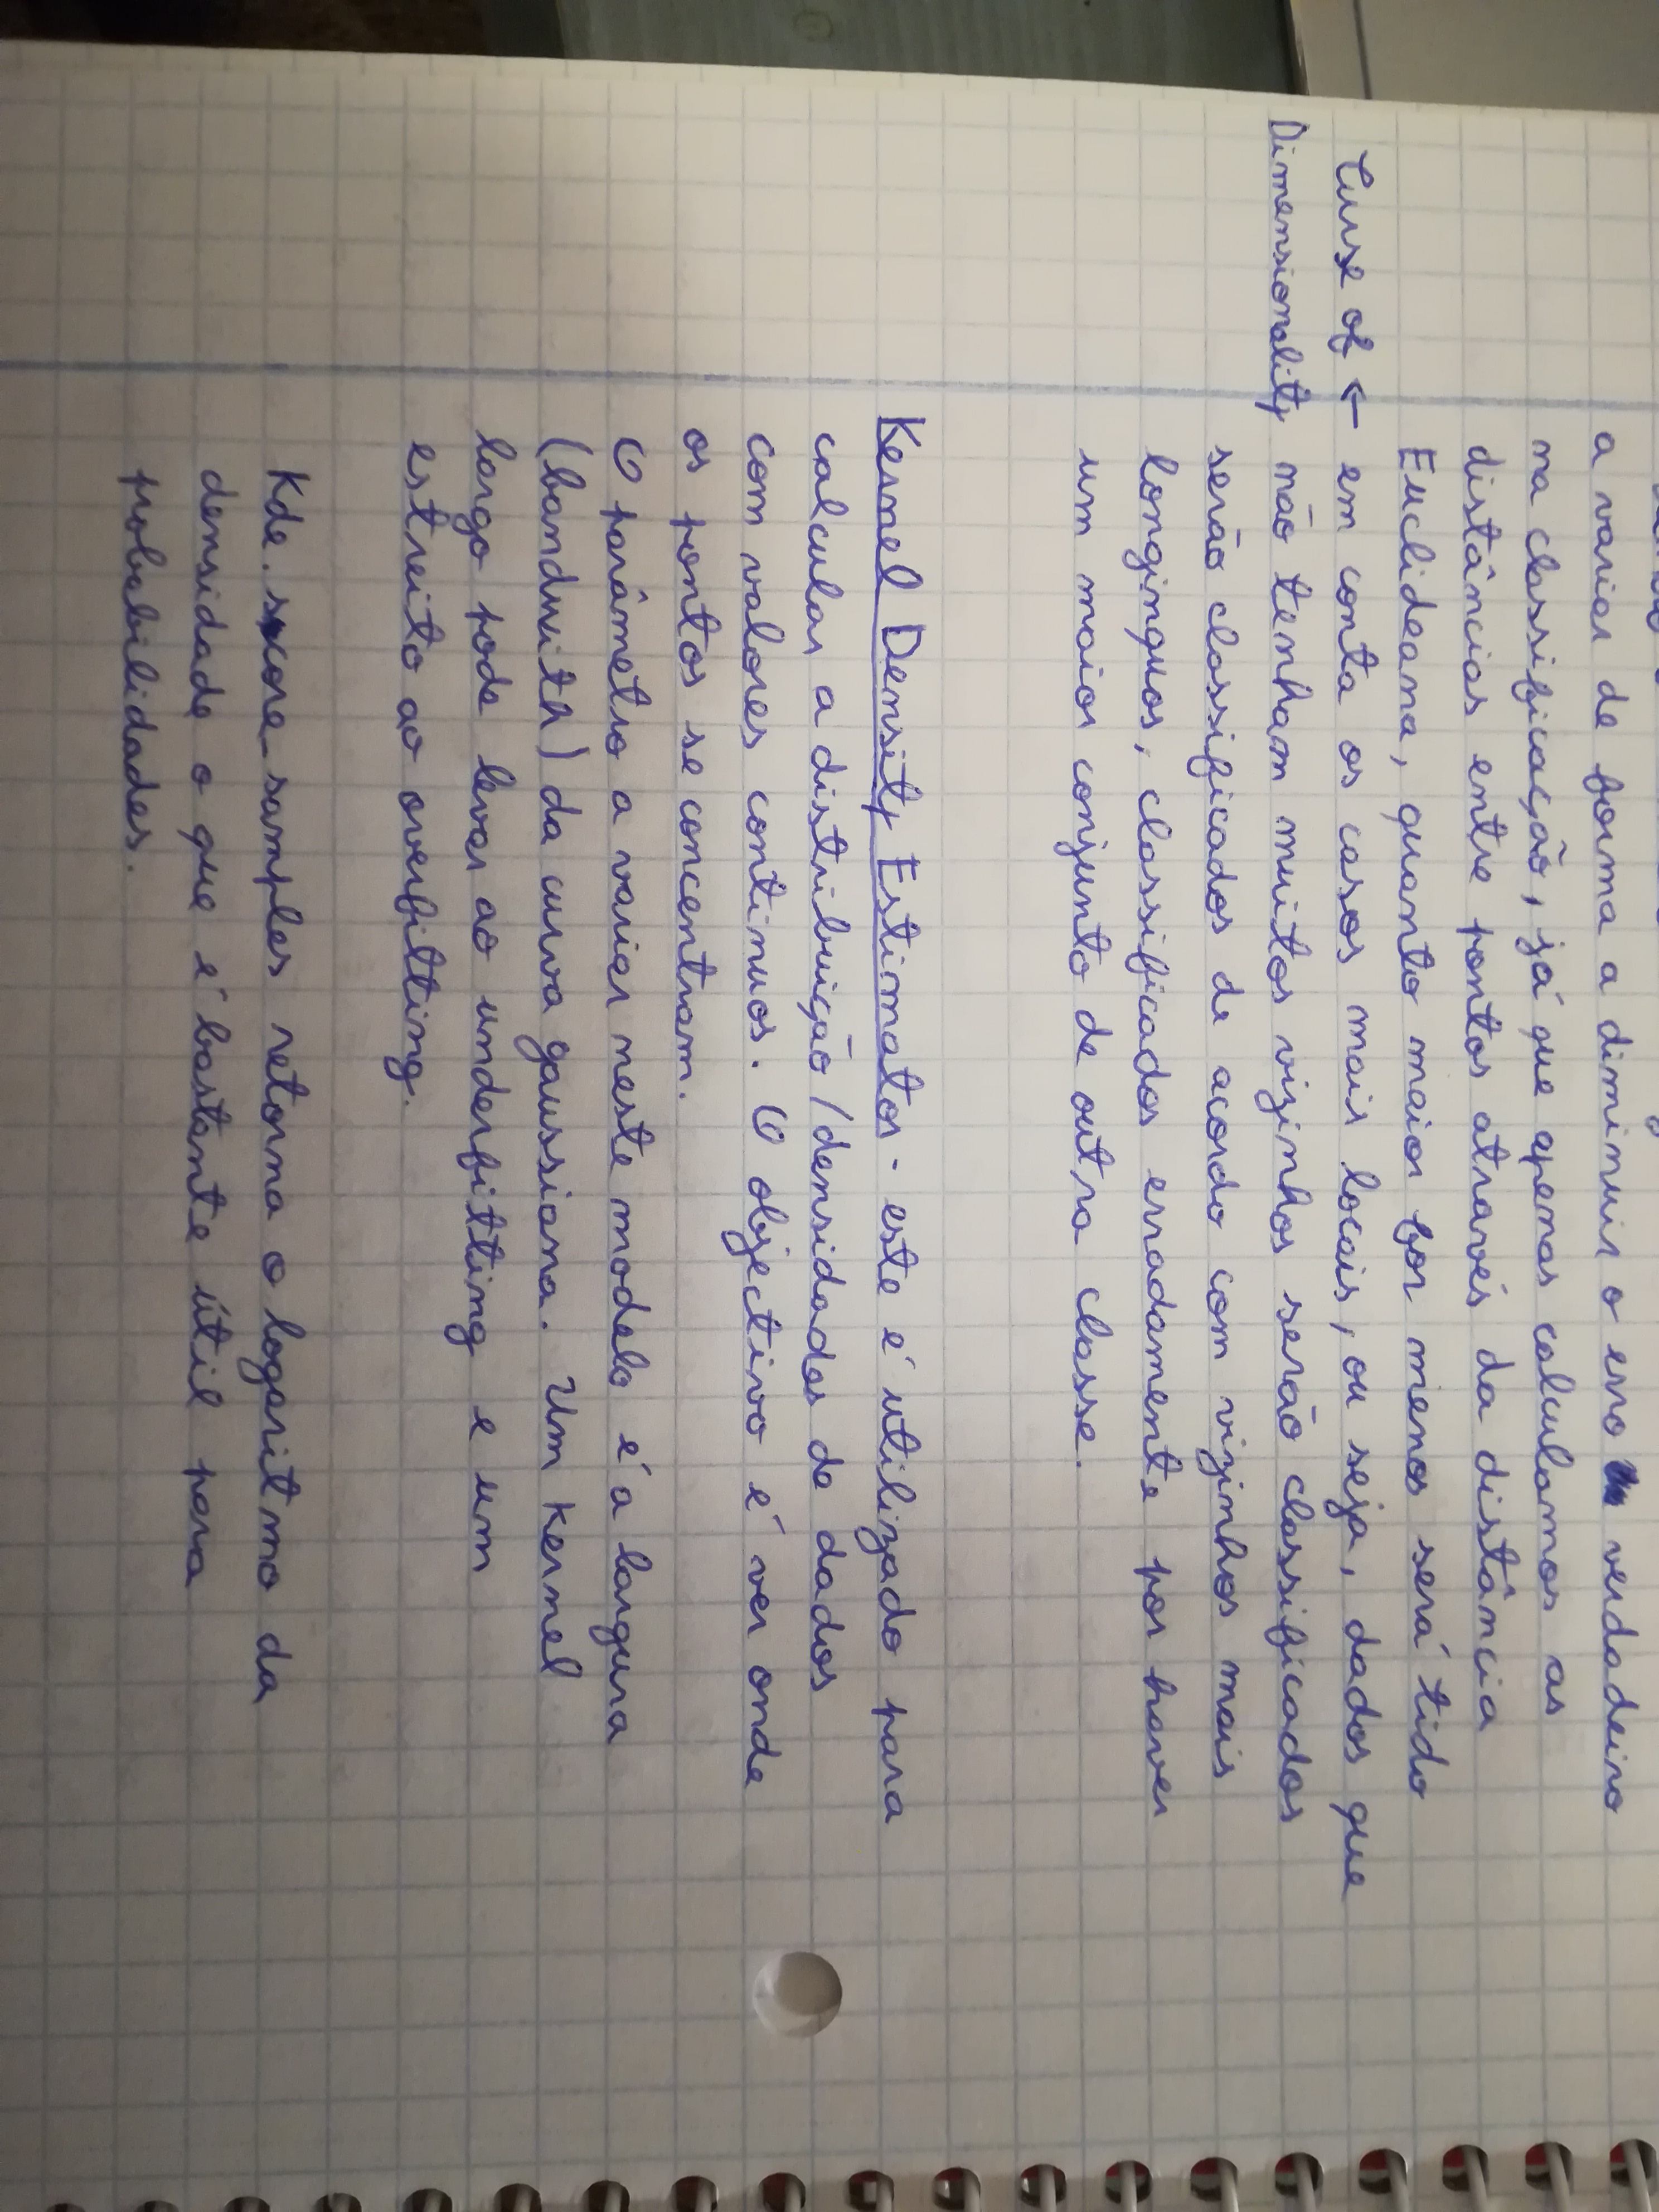 a variar de forma a diminuir o erro verdadeiro
na classificação, já que apenas calculamos as
distâncias entre pontos através da distância
Euclideana, quanto maior for menos será tido
Curse of ← em conta os casos mais locais, ou seja, dados que
Dimensionality não tenham muitos vizinhos serão classificados
serão classificados de acordo com vizinhos mais
longinquos, classificados erradamente por haver
um maior conjunto de outra classe.
Kernel Density Estimator - este é utilizado para
calcular a distribuição/densidades de dados
com valores continuos. O objectivo é ver onde
os pontos se concentram.
O parâmetro a variar neste modelo é a largura
(bandwith) da curva gaussiana. Um Kernel
largo pode levar ao underfitting e um
estreito ao overfitting.
Kde.score_samples retorna o logaritmo da
densidade o que é bastante útil para
probabilidades.